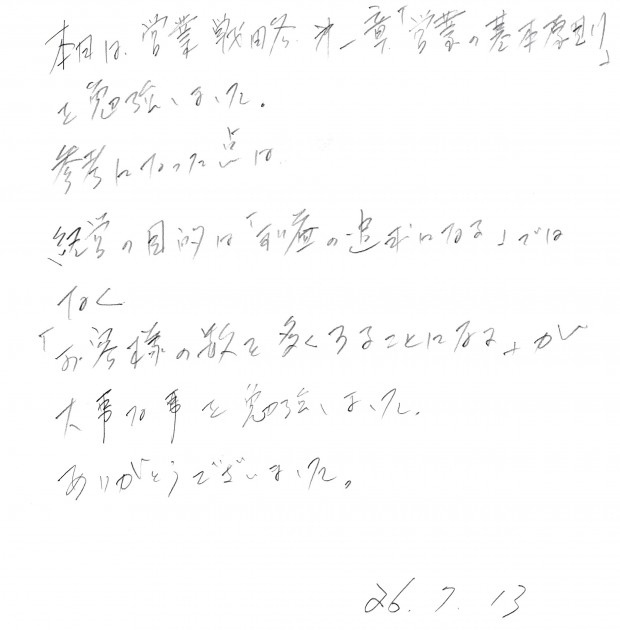 本日は、営業戦略 第一章「営業の基本原則」
を勉強しました。
参考になった点は、
経営の目的は「利益の追求になる」では
なく
「お客様の数を多くすることになる」が
大事な事を勉強しました。
ありがとうございました。
26.7.13